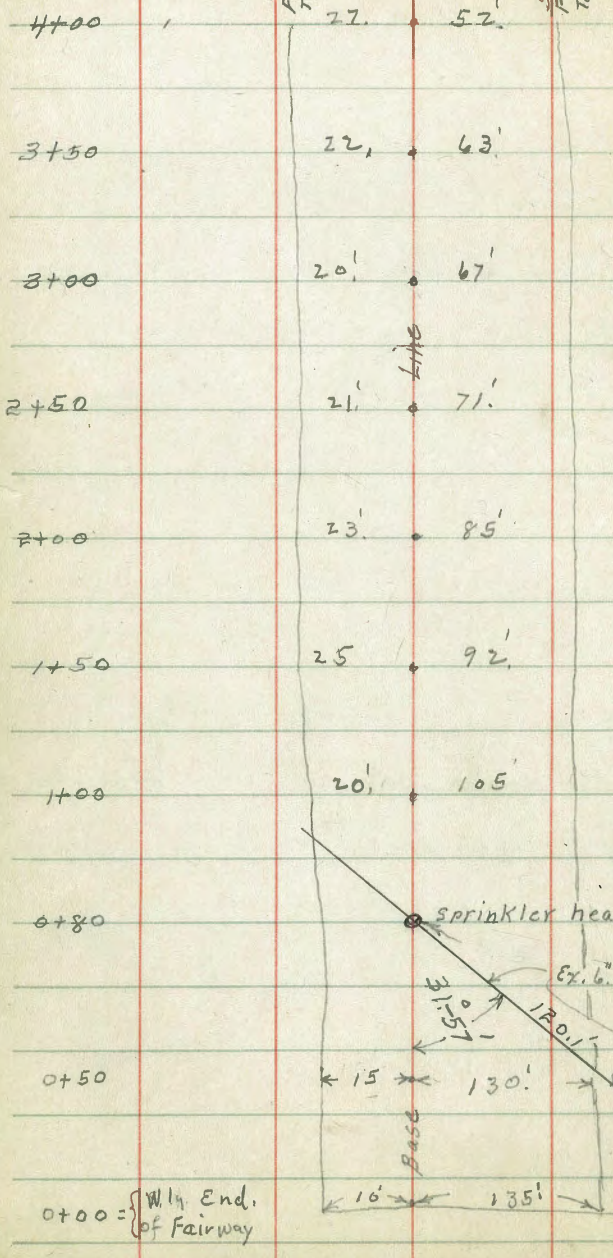 4+00 27. 52.
3+50 22. 63'
3+00 20' 67'
Line
2+50 21' 71'
2+00 23' 85'
1+50 25 92'
1+00 20' 105'
0+80 sprinkler hea
Ex. 6"
31°-57'
120.1'
0+50 15 130'
Base
10' 135'
0+00 = { W'ly End.
of Fairway